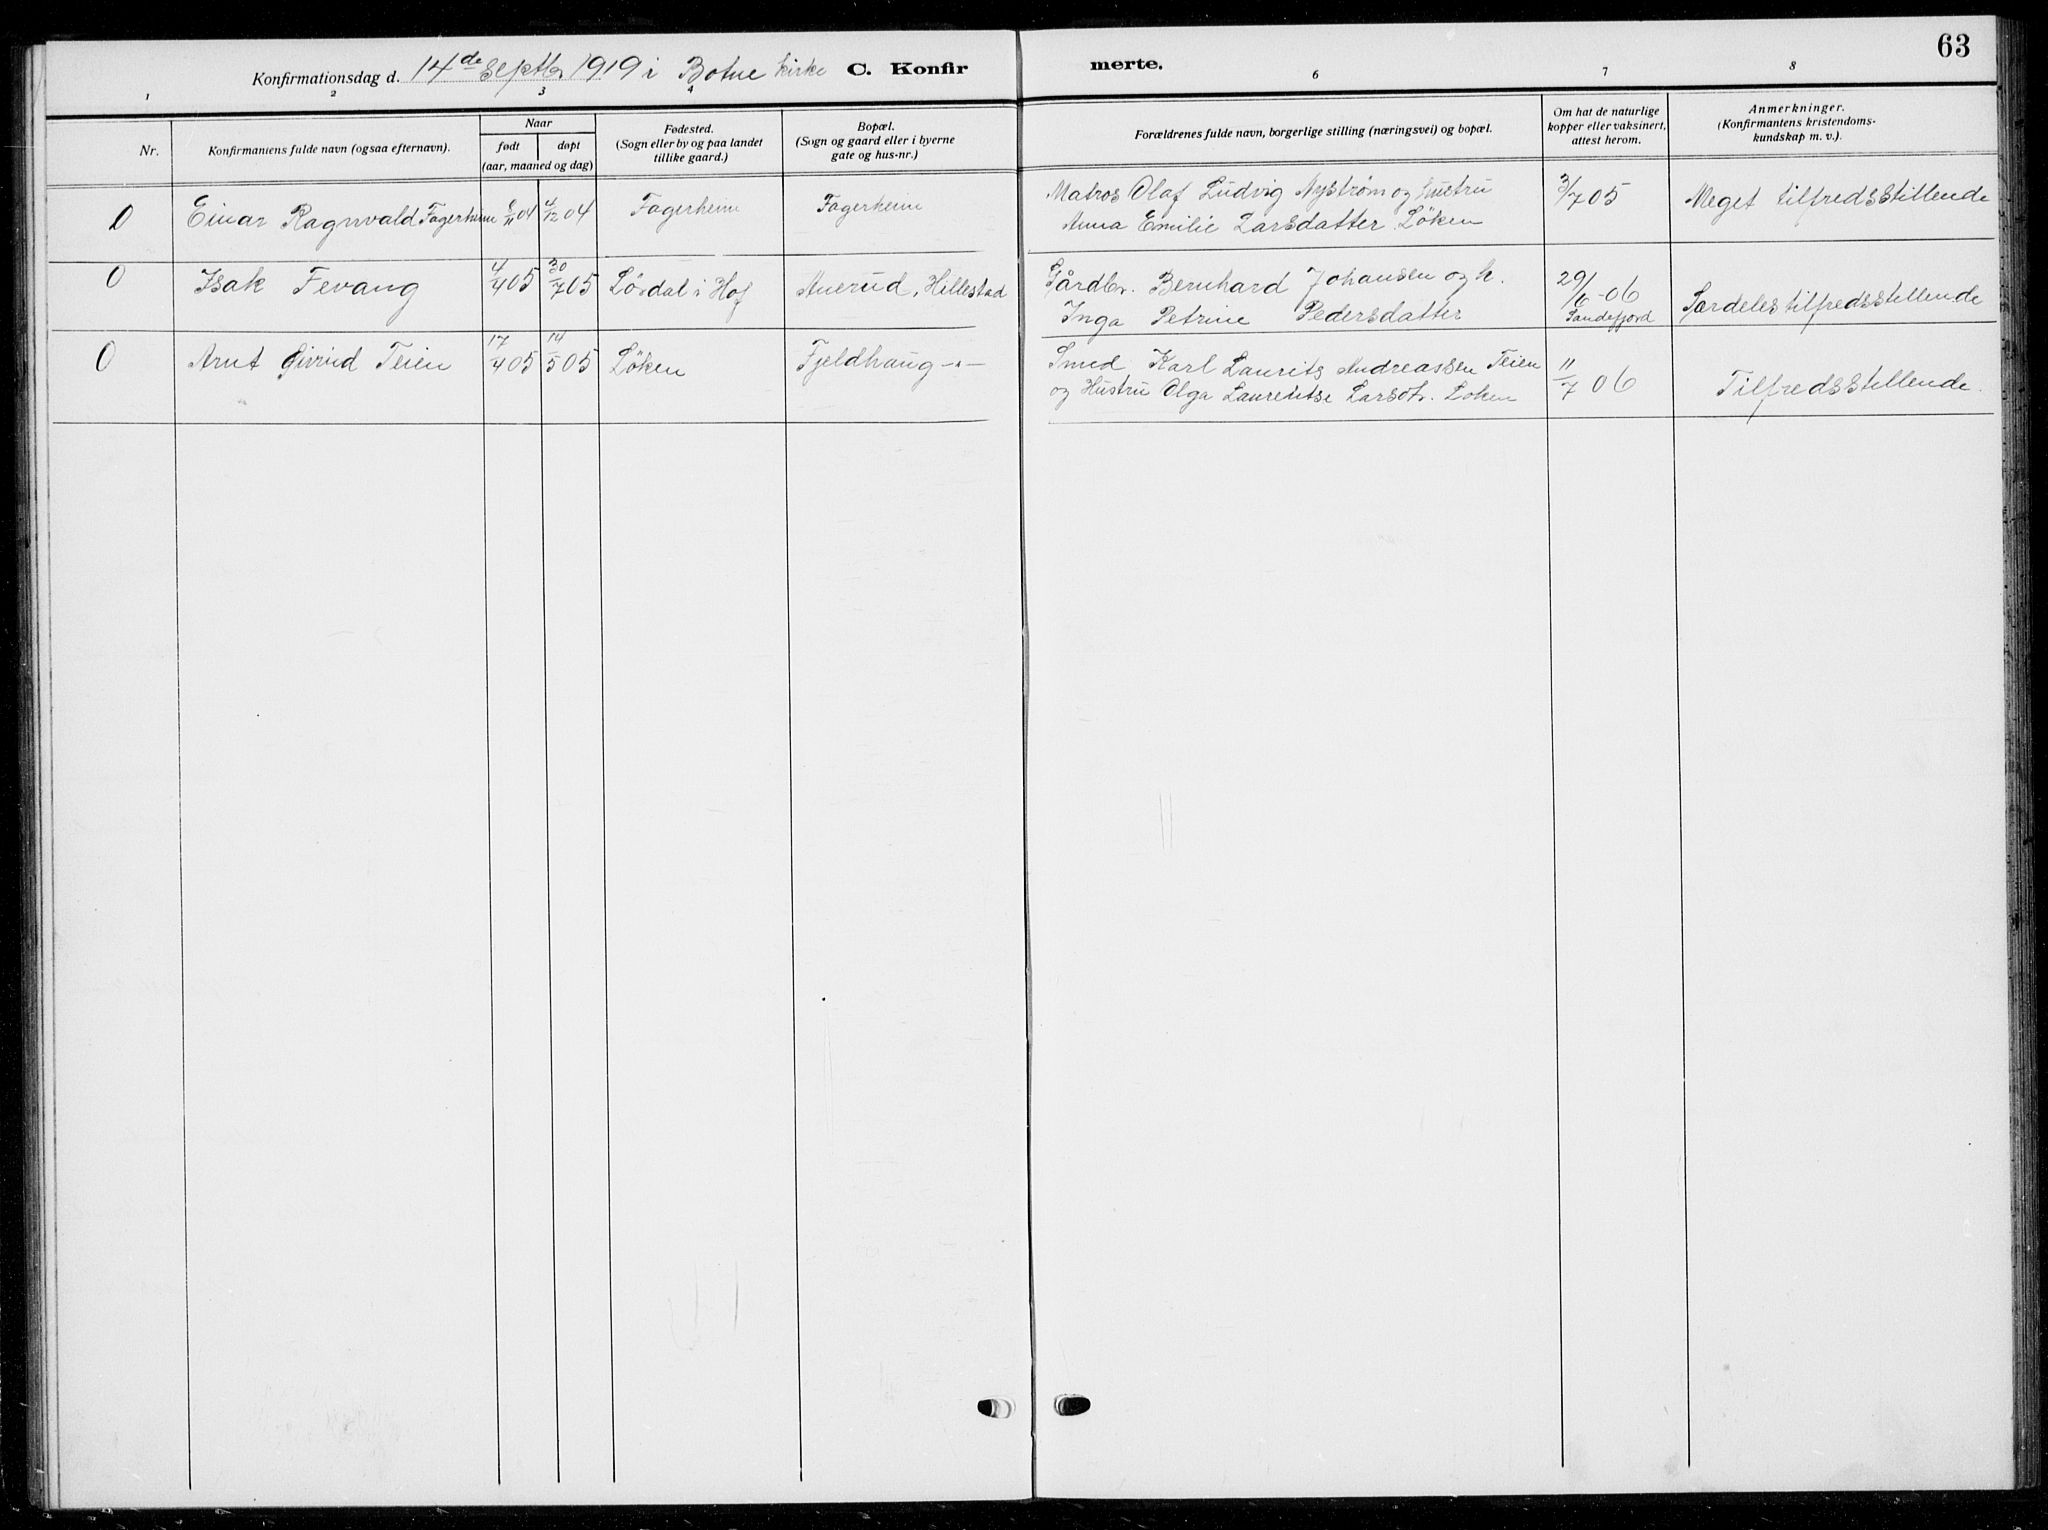 63
Konfirmationsdag d. 14de Septbr 1919 i Botne kirke C. Konfirmerte.
1 2 3 4 6 7 8
Nr.
Konfirmantens fulde navn (ogsaa efternavn).
Naar
født døpt
(aar, maaned og dag)
Fødested.
(Sogn eller by og paa landet
tillike gaard.)
Bopæl.
(Sogn og gaard eller i byerne
gate og hus-nr.)
Forældrenes fulde navn, borgerlige stilling (næringsvei) og bopæl.
Om hat de naturlige
kopper eller vaksinert,
attest herom.
Anmerkninger.
(Konfirmantens kristendoms-
kundskap m. v.).
0 Einar Ragnvald Fagerheim /11 04 4/12 04 Fagerheim Fagerheim Matros Olaf Ludvig Nystrøm og hustru 3/7 05 Meget tilfredsstillende
Anna Emilie Larsdatter Løken
0 Isak Fevang 4/4 05 30/7 05 Lørdal i Hof Auerud, Hillestad Gårdbr. Bernhard Johansen og h. 29/6-06 Særdeles tilfredsstillende
Inga Petrine Pedersdatter Sandefjord
0 Arnt Eivind Teien 17/4 05 14/5 05 Løken Fjeldhaug -"- Smed Karl Laurits Andreassen Teien 11/7 06 Tilfredsstillende.
og Hustru Olga Laurentse Larsdtr. Løken